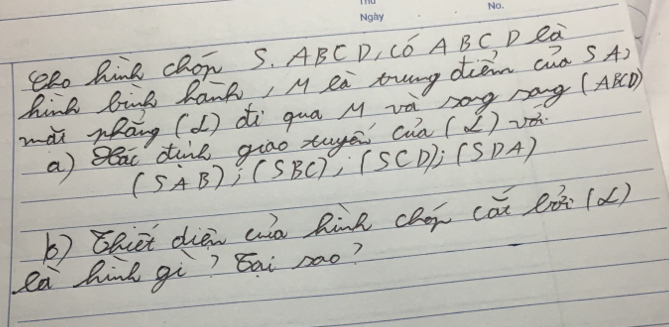 Thứ
Ngày
No.
Cho hình chóp S.ABCD, có ABCD là
hình bình hành, M là trung điểm của SA,
mặt phẳng (α) đi qua M và song song (ABCD)
a) Xác định giao tuyến của (α) với:
(SAB); (SBC); (SCD); (SDA)
b) Thiết diện của hình chóp cắt bởi (α)
là hình gì? Tại sao?